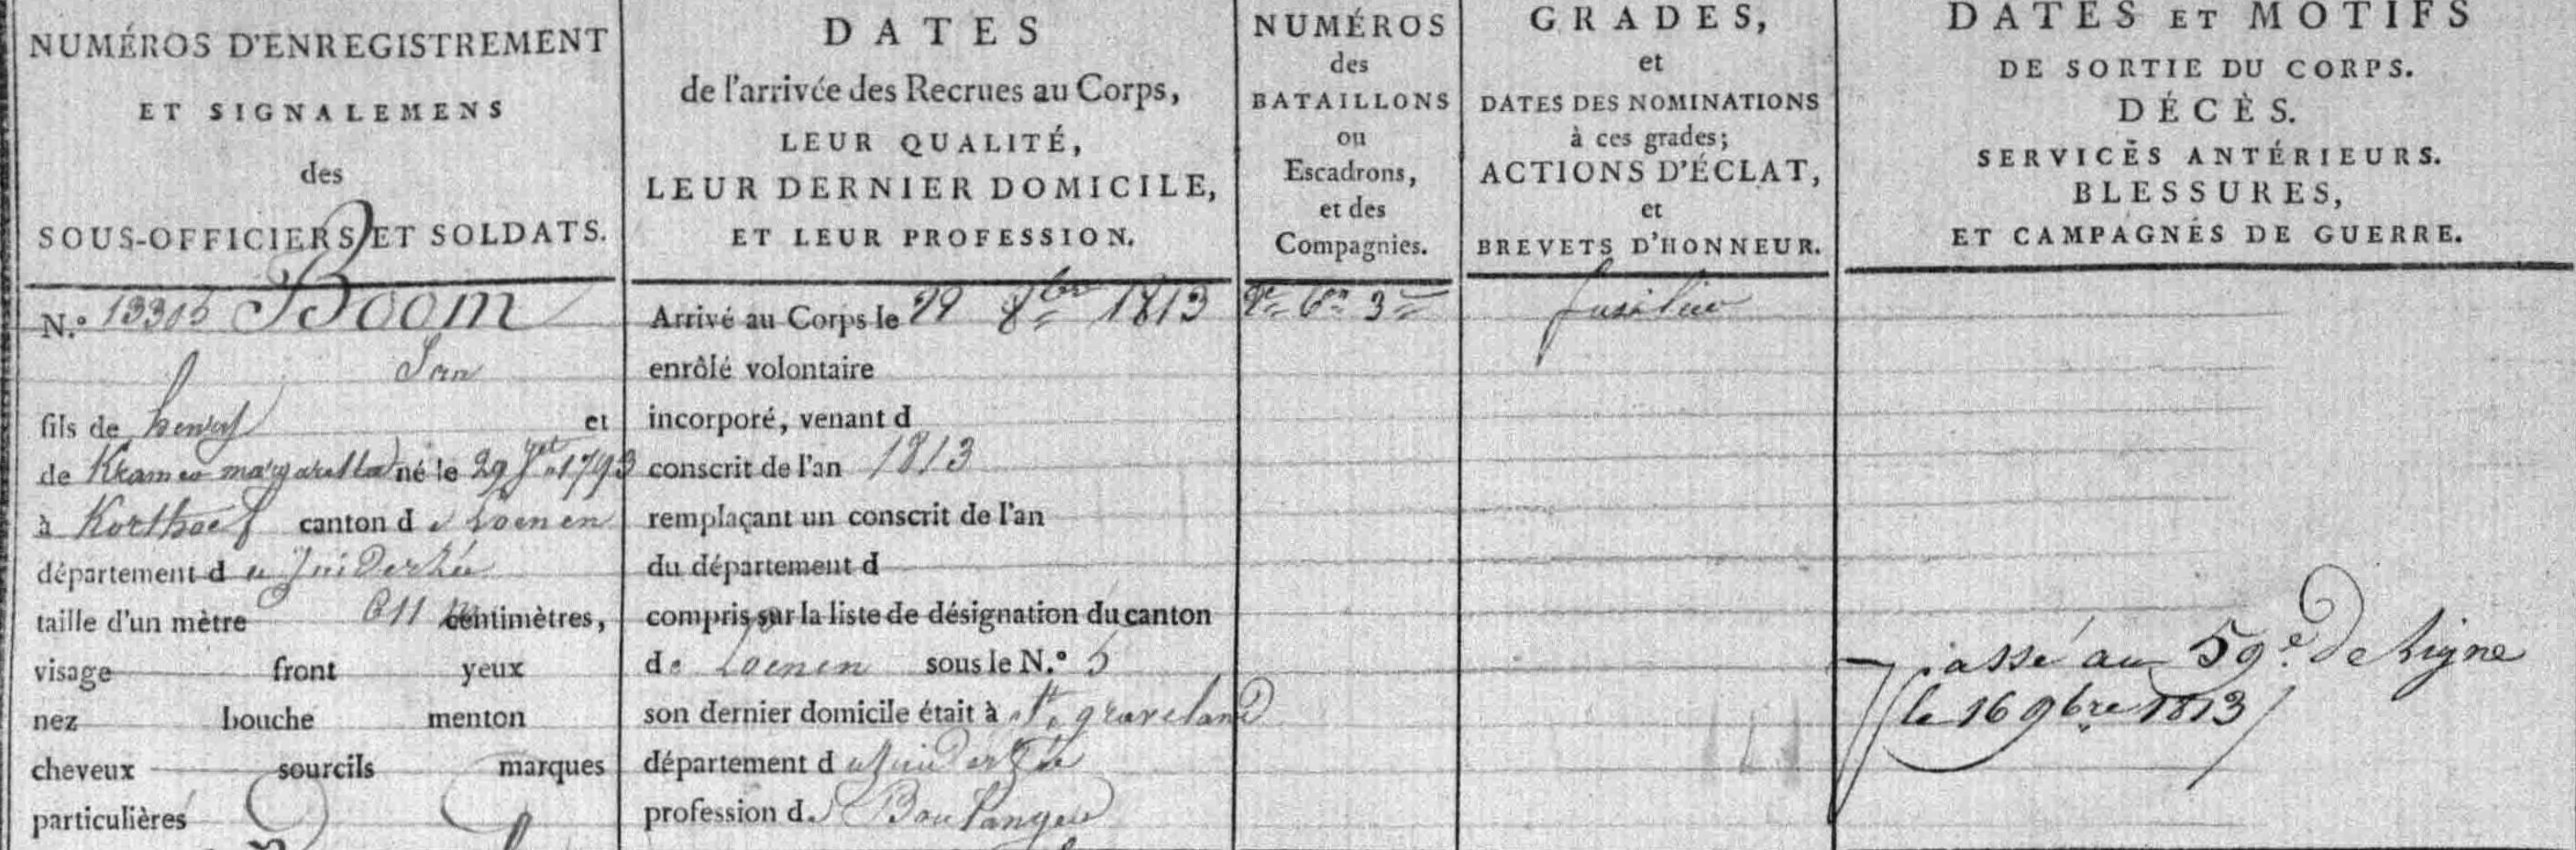 NUMÉROS D'ENREGISTREMENT
ET SIGNALEMENS
des
SOUS-OFFICIERS ET SOLDATS.
DATES
de l'arrivée des Recrues au Corps,
LEUR QUALITÉ,
LEUR DERNIER DOMICILE,
ET LEUR PROFESSION.
NUMÉROS
des
BATAILLONS
ou
Escadrons,
et des
Compagnies.
GRADES,
et
DATES DES NOMINATIONS
à ces grades;
ACTIONS D'ÉCLAT,
et
BREVETS D'HONNEUR.
DATES ET MOTIFS
DE SORTIE DU CORPS.
DÉCÈS.
SERVICES ANTÉRIEURS.
BLESSURES,
ET CAMPAGNES DE GUERRE.
N.º 13305 Boom
Jan
fils de henry et
de Kramer margaretta né le 29 1793
à Korthoef canton de Loenen
département du Zuiderzée
taille d'un mètre 611 centimètres,
visage front yeux
nez bouche menton
cheveux sourcils marques
particulières
Arrivé au Corps le 29 8bre 1813
enrôlé volontaire
incorporé, venant d
conscrit de l'an 1813
remplaçant un conscrit de l'an
du département d
compris sur la liste de désignation du canton
de Loenen sous le N.º 5
son dernier domicile était à graveland
département du Zuiderzée
profession d. Boulanger
6n 3e
fusilier
passé au 59e. De Ligne
le 16 9bre 1813